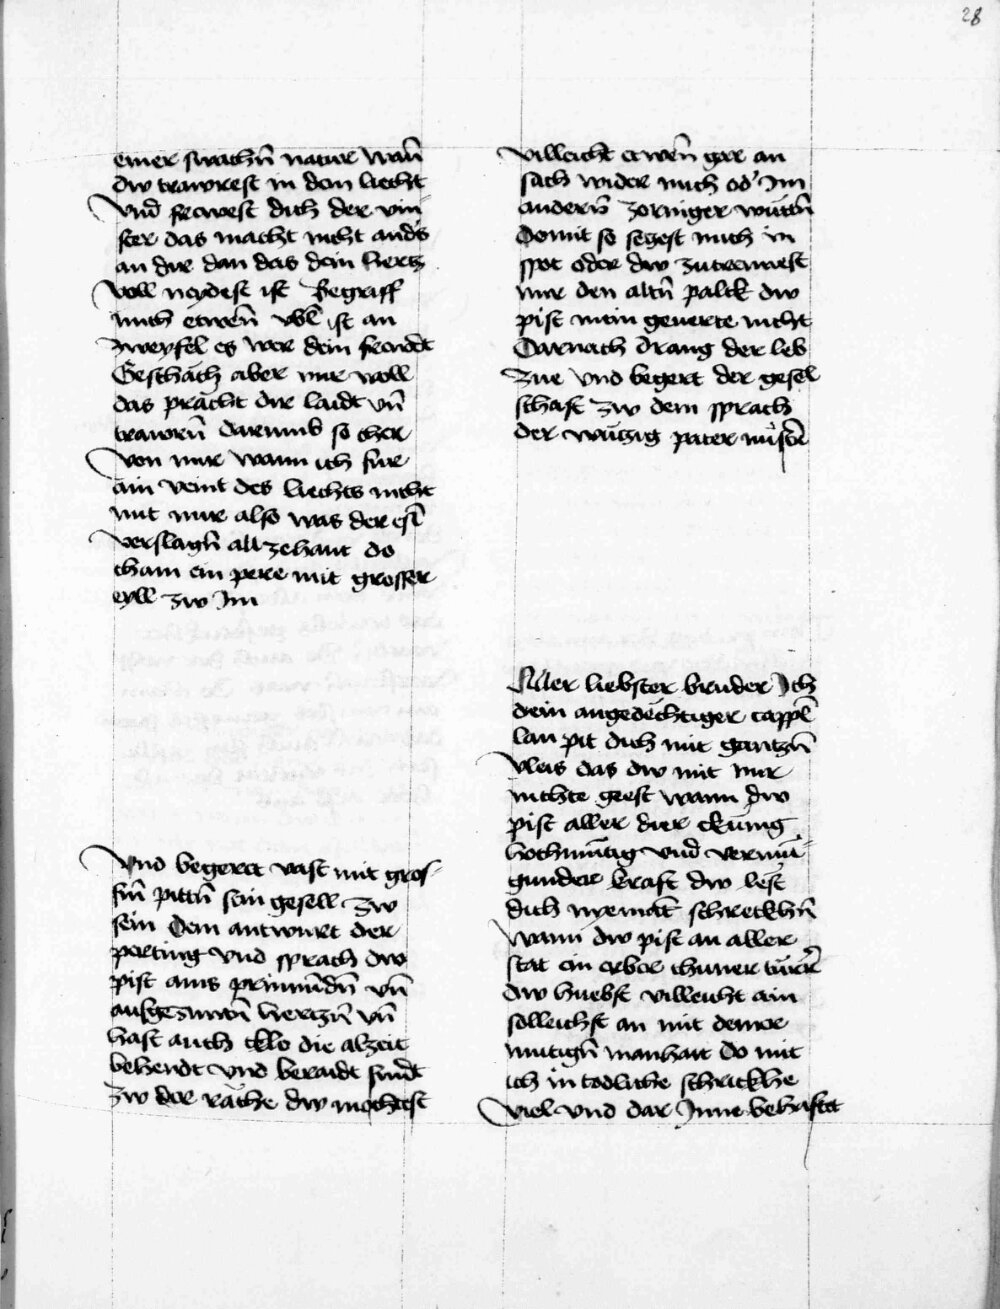 28
einer swachn̄ natur wan̄
dw trawrest in dem liecht
vnd frewest dich der vin¬
ster das macht nicht and's
an dir dan das dein hertz
voll neydest ist Begriff
mich etwen̄ vbl̄ ist an
zweyfel es wer dein frewdt
Geschäch aber mir woll
das prächt dir laidt vn̄
trawrn̄ darumb so cher
von mir wann ich für
ain veint des liechts nicht
mit mir also was der esl̄
verslagn̄ allzehant do
cham ein pere mit grosser
eyll zw Im
Vnd begert vast mit gros¬
sn̄ pittn̄ sein gesell zw
sein Dem antwurt der
und sprach dw
pist ains vn̄
hertzn̄ vn̄
hast auch cklo die alzeit
behendt vnd beraidt sindt
zw der räche dw möchtest
villeicht etwen̄ gar an
sach wider mich od' Im
andern̄ zorniger wütn̄
Domit so seczest mich in
spot oder dw zutrennest
mir den altn̄ palck dw
pist mein geuerte nicht
Darnach drang der leb
zue vnd begert der gesel
schaft zw dem sprach
der wützig pater
Aller liebster bruder Ich
dein angedëchtiger cappl̄
lan pit dich mit gantzn̄
vleis das dw mit mir
nichte geest wann dw
pist aller dier ckünig
hochmütig vnd vermü¬
gunder kraft dw lest
dich nyemāt schreckhn̄
wann dw pist an aller
stat ein erber chuner
dw huebst villeicht ain
solleichst an mit deiner
mutign̄ manhait do mit
ich in todliche schrickhe
viel vnd dar Inne behaftet